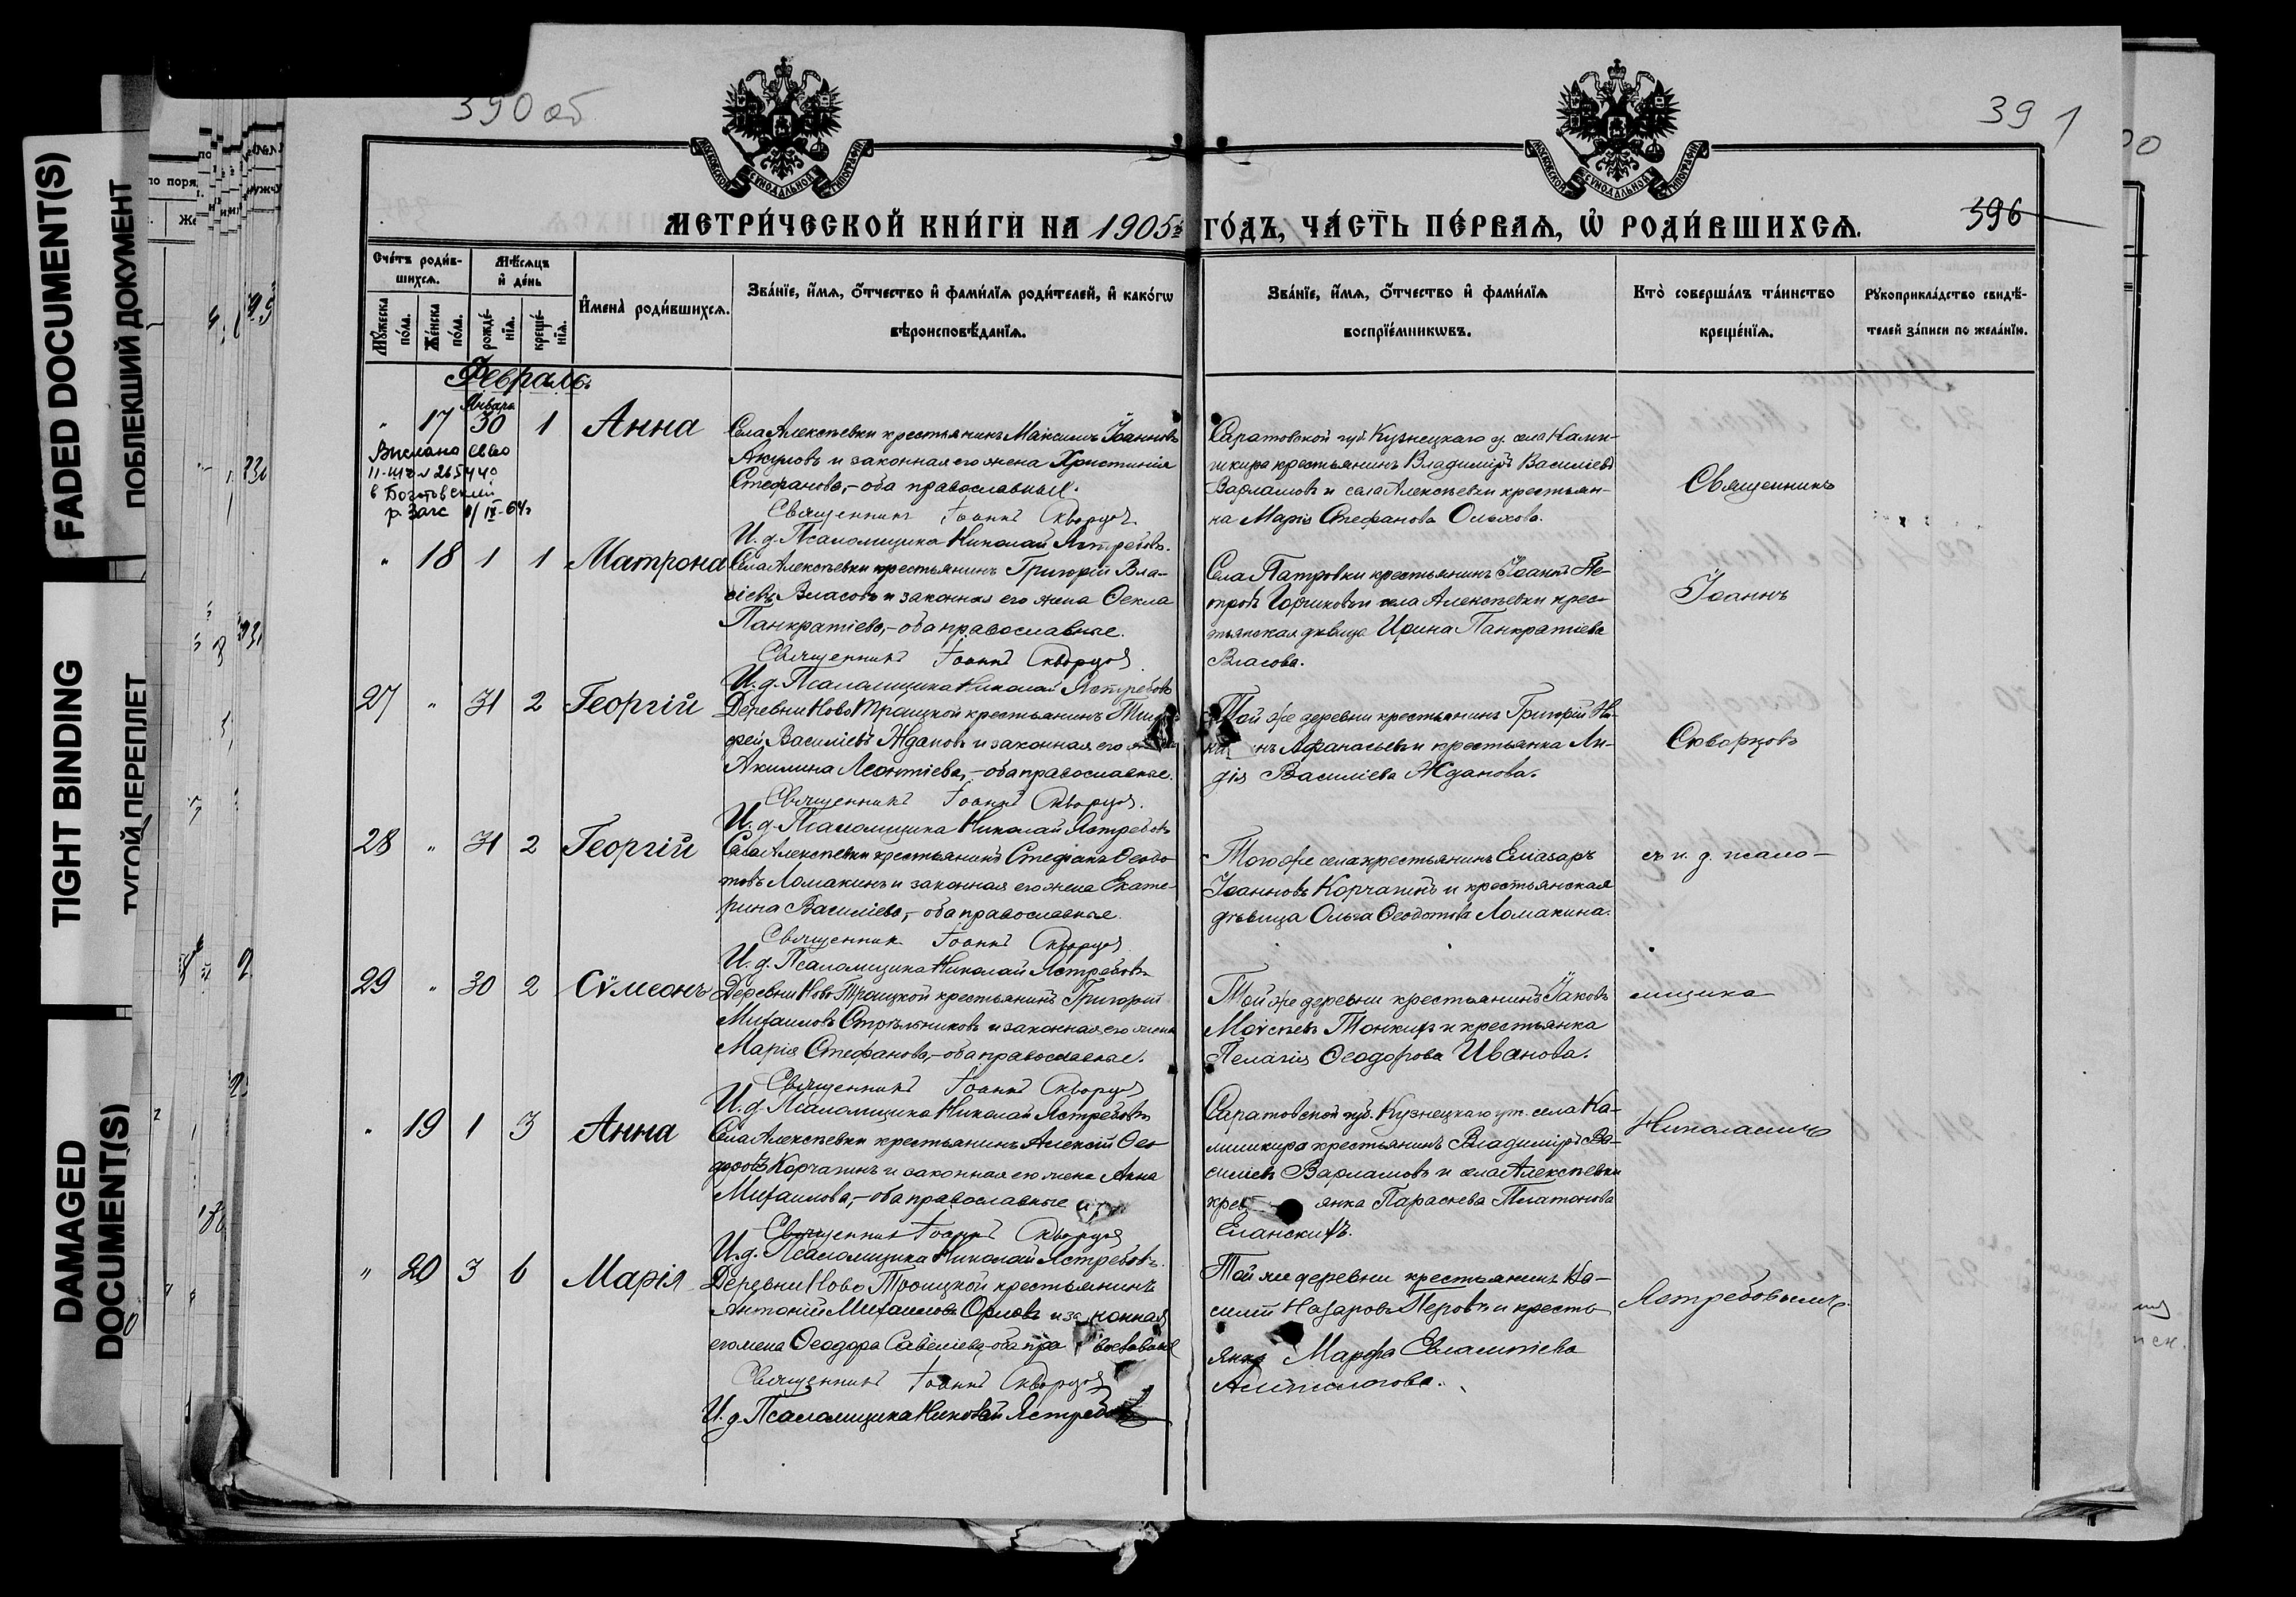 FADED DOCUMENT(S)
ПОБЛЕКШИЙ ДОКУМЕНТ
TIGHT BINDING
ТУГОЙ ПЕРЕПЛЕТ
DAMAGED DOCUMENT(S)
390 об
391
396
МОСКОВСКОЙ СУНОДАЛЬНОЙ ТИПОГРАФІИ
МОСКОВСКОЙ СУНОДАЛЬНОЙ ТИПОГРАФІИ
МЕТРИ́ЧЕСКОЙ КНИ́ГИ НА 1905й ГО́ДЪ, ЧА́СТЬ ПЕ́РВАѦ, Ѡ РОДИ́ВШИХСѦ.
Сче́тъ роди́в-
шихсѧ.
Мѣ́сѧцъ
и҆ де́нь
Мꙋ́жеска по́ла.
Же́нска по́ла.
рожде́-нїѧ.
креще́-нїѧ.
И҆мена̀ роди́вшихсѧ.
Зва́нїе, и҆́мѧ, ѻ҆́тчество и҆ фами́лїѧ роди́телей, и҆ како́гѡ
вѣроисповѣ́данїѧ.
Зва́нїе, и҆́мѧ, ѻ҆́тчество и҆ фами́лїѧ
воспрїе́мникѡвъ.
Кто̀ соверша́лъ та́инство
креще́нїѧ.
Рꙋкоприкла́дство свидѣ́-
телей за́писи по жела́нїю.
Февраль.
" 17 Января 30 1 Анна
Села Алексѣевки крестьянинъ Максимъ Іоанновъ
Акуловъ и законная его жена Христинія
Стефанова,- оба православныe.
Священникъ Іоаннъ Скворцовъ
И. д. Псаломщика Николай Ястребовъ.
Саратовской губ. Кузнецкаго у. села Камы-
шкира крестьянинъ Владиміръ Василіевъ
Варламовъ и села Алексѣевки крестьян-
ка Марія Стефанова
Священникъ
Выслано св-во
в
р. Загс
" 18 1 1 Матрона
Села Алексѣевки крестьянинъ Григорій Вла-
сіевъ Власовъ и законная его жена Ѳекла
Панкратіева,- оба православные.
Священникъ Іоаннъ Скворцовъ
И. д. Псаломщика Николай Ястребовъ
Села Патровки крестьянинъ Іоаннъ Пе-
тровъ и села Алексѣевки крес-
тьянская дѣвица Ирина Панкратіева
Власова.
Іоаннъ
27 " 31 2 Георгій
Деревни Ново Троицкой крестьянинъ
Василіевъ Ждановъ и законная его
Акилина Леонтіева,- оба православные.
Священникъ Іоаннъ Скворцовъ.
И. д. Псаломщика Николай Ястребовъ
Той же деревни крестьянинъ Григорій
Афанасьевъ и крестьянка Ли-
дія Василіева Жданова.
Скворцовъ
28 " 31 2 Георгій
Села Алексѣевки крестьянинъ Стефанъ Ѳеодо-
товъ Ломакинъ и законная его жена Екате-
рина Василіева,- оба православные.
Священникъ Іоаннъ Скворцовъ
И. д. Псаломщика Николай Ястребовъ
Того же села крестьянинъ Елiазаръ
Іоанновъ Корчагинъ и крестьянская
дѣвица Ольга Ѳеодотова Ломакина.
съ и. д. псало-
29 " 30 2 Сѵмеонъ
Деревни Ново Троицкой крестьянинъ Григорій
Михаиловъ Стрѣльниковъ и законная его жена
Марія Стефанова,- оба православные.
Священникъ Іоаннъ Скворцовъ
И. д. Псаломщика Николай Ястребовъ
Той же деревни крестьянинъ Іаковъ
Моѵсеевъ Тонкихъ и крестьянка
Пелагія Ѳеодорова Иванова.
мщика
" 19 1 3 Анна
Села Алексѣевки крестьянинъ Алексій Ѳео-
доровъ Корчагинъ и законная его жена Анна
Михаилова,- оба православные
Священникъ Іоаннъ Скворцовъ
И. д. Псаломщика Николай Ястребовъ.
Саратовской губ. Кузнецкаго уѣ. села Ка-
мышкира крестьянинъ Владиміръ Ва-
силіевъ Варламовъ и села Алексѣевки
янка Параскева Платонова
Еланскихъ.
Николаемъ
" 20 3 6 Марія
Деревни Ново Троицкой крестьянинъ
Антоній Михаиловъ Орловъ и законная
его жена Ѳеодора Савеліева,- оба
Священникъ Іоаннъ Скворцовъ
И. д. Псаломщика Николай Ястребовъ
Той же деревни крестьянинъ Ва-
силій Назаровъ Перовъ и кресть-
янка Марфа Евлампіева
Ястребовымъ.